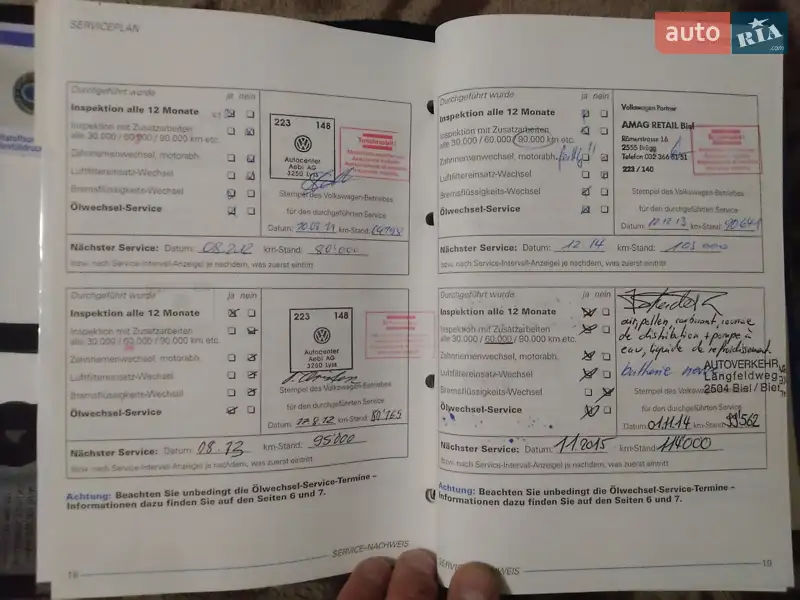 SERVICEPLAN
Durchgeführt wurde ja nein
Inspektion alle 12 Monate
Inspektion mit Zusatzarbeiten
alle 30.000 / 60.000 / 90.000 km etc.
Zahnriemenwechsel, motorabh.
Luftfiltereinsatz-Wechsel
Bremsflüssigkeits-Wechsel
Ölwechsel-Service
223 148
Autocenter
Aebi AG
3250 Lyss
Stempel des Volkswagen-Betriebes
für den durchgeführten Service
Datum: km-Stand:
Nächster Service: Datum: 08.2.12 km-Stand: 80'000
bzw. nach Service-Intervall-Anzeige je nachdem, was zuerst eintritt
Durchgeführt wurde ja nein
Inspektion alle 12 Monate
Inspektion mit Zusatzarbeiten
alle 30.000 / 60.000 / 90.000 km etc.
Zahnriemenwechsel, motorabh.
Luftfiltereinsatz-Wechsel
Bremsflüssigkeits-Wechsel
Ölwechsel-Service
223 148
Autocenter
Aebi AG
3250 Lyss
Stempel des Volkswagen-Betriebes
für den durchgeführten Service
Datum: km-Stand: 80'165
Nächster Service: Datum: 08.13 km-Stand: 95'000
bzw. nach Service-Intervall-Anzeige je nachdem, was zuerst eintritt
Achtung: Beachten Sie unbedingt die Ölwechsel-Service-Termine –
Informationen dazu finden Sie auf den Seiten 6 und 7.
18
SERVICE-NACHWEIS
auto RIA .com
Durchgeführt wurde ja nein
Inspektion alle 12 Monate
Inspektion mit Zusatzarbeiten
alle 30.000 / 60.000 / 90.000 km etc.
Zahnriemenwechsel, motorabh.
Luftfiltereinsatz-Wechsel
Bremsflüssigkeits-Wechsel
Ölwechsel-Service
Volkswagen Partner
AMAG RETAIL Biel
Römerstrasse 16
2555 Brügg
Telefon 032 366 51 51
223 / 140
Stempel des Volkswagen-Betriebes
für den durchgeführten Service
Datum: 12.12.13 km-Stand: 90641
Nächster Service: Datum: 12 14 km-Stand: 105 000
bzw. nach Service-Intervall-Anzeige je nachdem, was zuerst eintritt
Durchgeführt wurde ja nein
Inspektion alle 12 Monate
Inspektion mit Zusatzarbeiten
alle 30.000 / 60.000 / 90.000 km etc.
Zahnriemenwechsel, motorabh.
Luftfiltereinsatz-Wechsel
Bremsflüssigkeits-Wechsel
Ölwechsel-Service
air, pollen, carburant, courroie
de distribution + pompe à
eau, liquide de refroidissement
batterie
AUTOVERKEHR
Längfeldweg
2504 Biel/Bienne
Stempel des
für den durchgeführten Service
Datum: 01.11.14 km-Stand: 99'562
Nächster Service: Datum: 11.2015 km-Stand: 114000
bzw. nach Service-Intervall-Anzeige je nachdem, was zuerst eintritt
Achtung: Beachten Sie unbedingt die Ölwechsel-Service-Termine –
Informationen dazu finden Sie auf den Seiten 6 und 7.
19